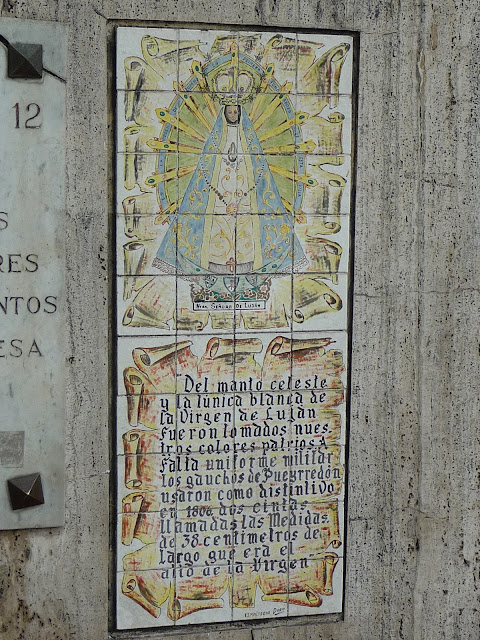 12
S
RES
NTOS
ESA
Ntra. Señora de Luján
Del manto celeste
y la túnica blanca de
la Virgen de Luján
Fueron tomados nues-
tros colores patrios A
falta uniforme militar
los gauchos de Pueyrredón
usaron como distintivo
en 1806 dos cintas
llamadas las Medidas
de 38 centímetros de
largo que era el
alto de la Virgen